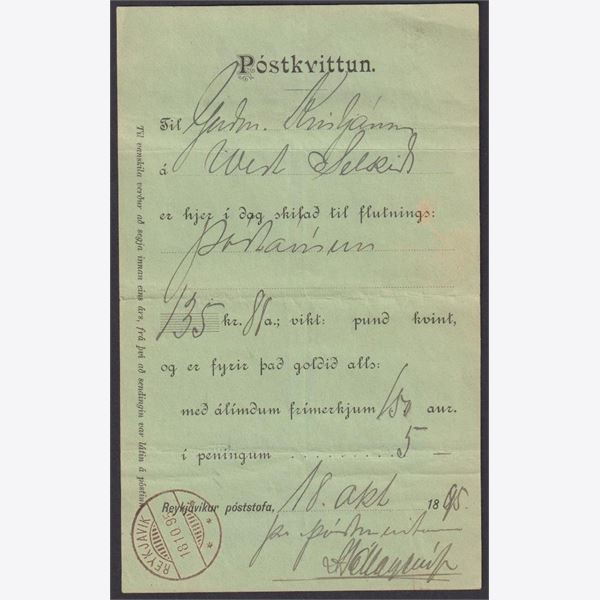 Póstkvittun.
Til Guðm.
á West Selkirk
er hjer í dag skilað til flutnings:
póstávísun
135 kr. 81 a.; vikt: pund kvint,
og er fyrir það goldið alls:
með álímdum frímerkjum 150 aur.
í peningum . . . . . . . . . 5 —
Reykjavíkur póststofa, 18. okt 1895.
pr póstmeistara
REYKJAVIK
18.10.95
Til vanskila verður að segja innan eins árs, frá því að sendingin var látin á póstinn